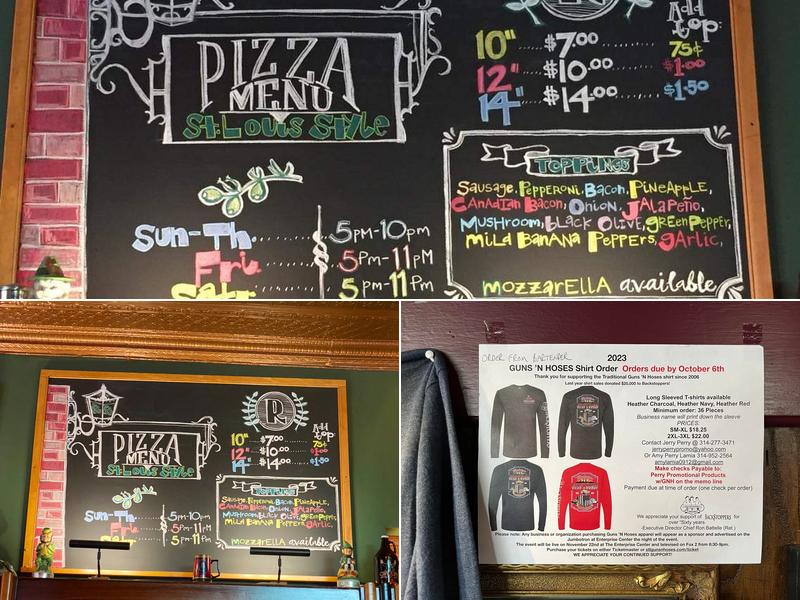 PIZZA
MENU
St. Louis Style
Add
top:
10" ...... $7.00 ...... 75¢
12" ...... $10.00 ...... $1.00
14" ...... $14.00 ...... $1.50
TOPPINGS
Sausage, Pepperoni, Bacon, Pineapple,
Canadian Bacon, Onion, Jalapeño,
Mushroom, black Olive, green Pepper,
Mild Banana Peppers, garlic,
mozzarella available
Sun-Th. ...... 5pm-10pm
Fri. ...... 5pm-11pm
Satr. ...... 5pm-11pm
PIZZA
MENU
St. Louis Style
R
Add
top:
10" ...... $7.00 ...... 75¢
12" ...... $10.00 ...... $1.00
14" ...... $14.00 ...... $1.50
TOPPINGS
Sausage, Pepperoni, Bacon, Pineapple,
Canadian Bacon, Onion, Jalapeño,
Mushroom, black Olive, green Pepper,
Mild Banana Peppers, garlic,
mozzarella available
Sun-Th. ...... 5pm-10pm
Fri. ...... 5pm-11pm
5pm-11pm
ORDER FROM BARTENDER
2023
GUNS 'N HOSES Shirt Order Orders due by October 6th
Thank you for supporting the Traditional Guns 'N Hoses shirt since 2006
Last year shirt sales donated $20,000 to Backstoppers!
Long Sleeved T-shirts available
Heather Charcoal, Heather Navy, Heather Red
Minimum order: 36 Pieces
Business name will print down the sleeve
PRICES:
SM-XL $18.25
2XL-3XL $22.00
Contact Jerry Perry @ 314-277-3471
jerryperrypromo@yahoo.com
Or Amy Perry Lamia 314-952-2564
amylamia0912@gmail.com
Make checks Payable to:
Perry Promotional Products
w/GNH on the memo line
Payment due at time of order (one check per order)
We appreciate your support of BACKSTOPPERS for
over "Sixty years
-Executive Director Chief Ron Battelle (Ret.)
Please note: Any business or organization purchasing Guns 'N Hoses apparel will appear as a sponsor and advertised on the
Jumbotron at Enterprise Center the night of the event.
The event will be live on November 22nd at The Enterprise Center and televised on Fox 2 from 6:30-9pm.
Purchase your tickets either Ticketmaster or stlgunsnhoses.com/ticket
WE APPRECIATE YOUR CONTINUED SUPPORT!